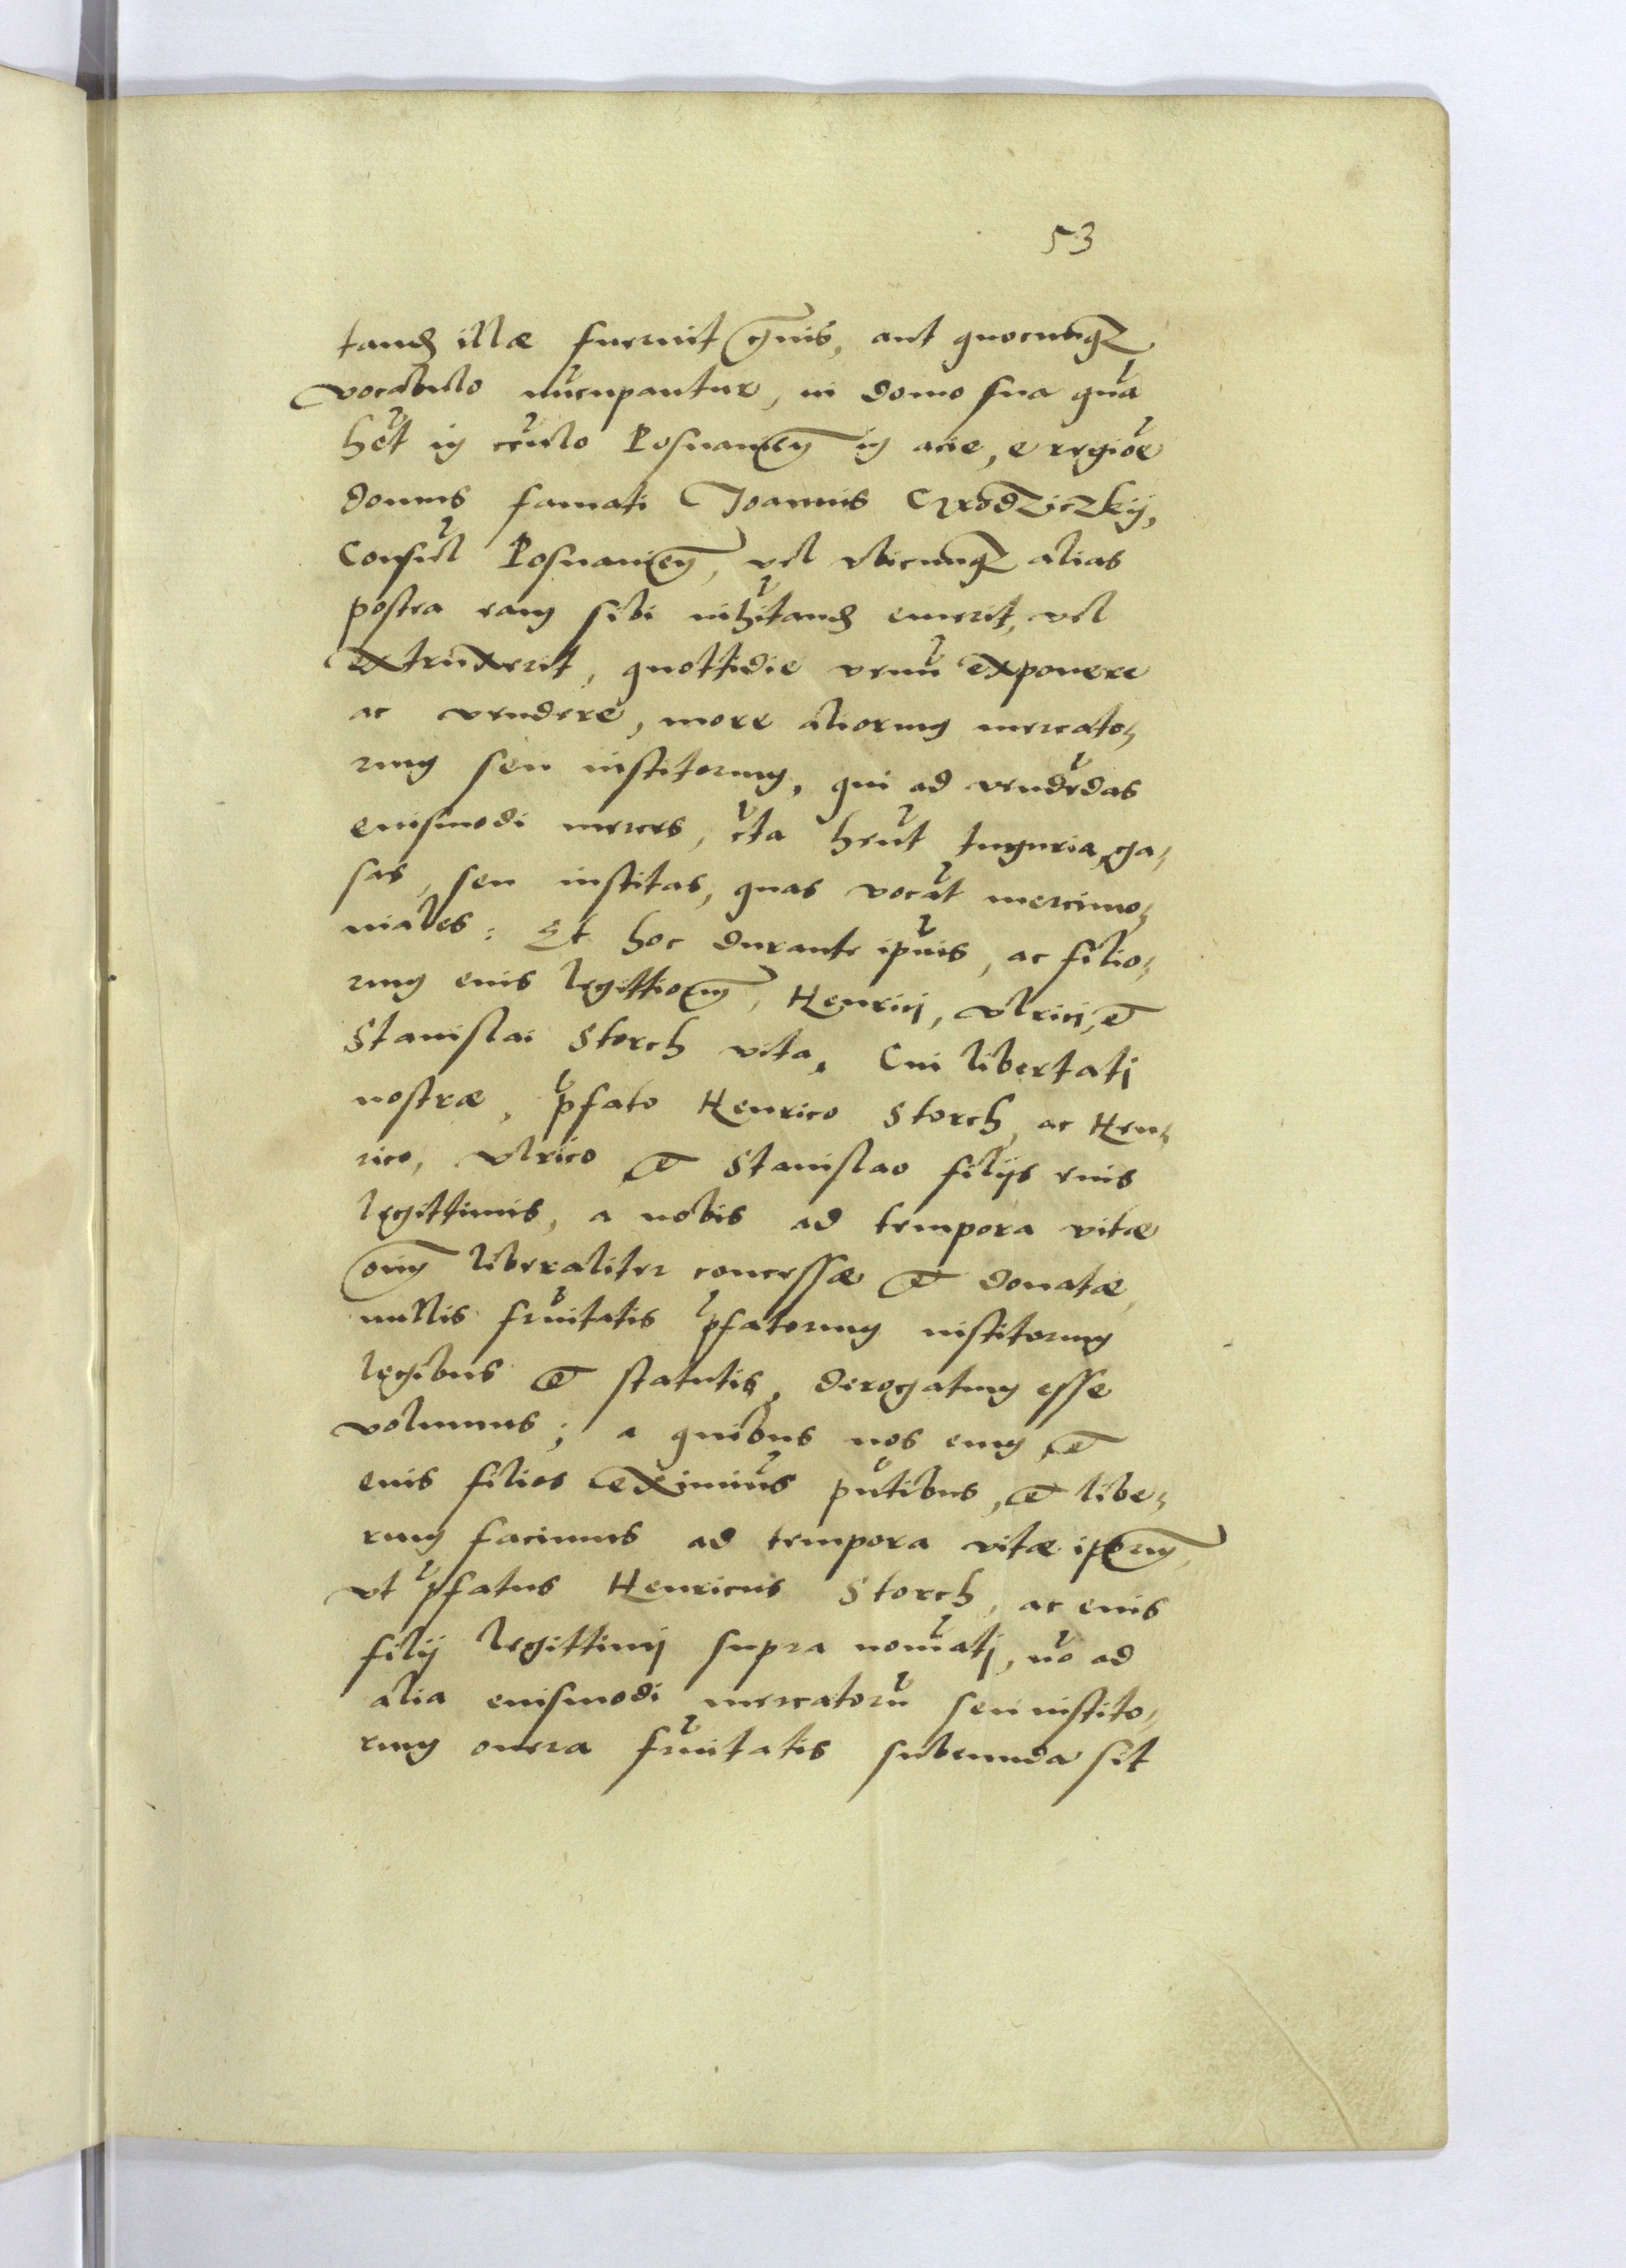 53
tand illæ fuerint gn̄is, aut quocunq
vocabulo nūcupantur, in domo sua quā
hēt in cr̄culo Posnanien̄ in acie, e regiōe
domus famati Joannis Grodziczky,
Consul̄ Posnanien̄, vel vbicunq alias
postea eam sibi inh̄itand emerit, vel
extruxerit, quottidie venū exponere
ac vendere, more aliorum mercato,
rum seu institorum, qui ad vendēdas
eiusmodi merces, c̄ta hēnt tuguria, ca,
sas, seu institas, quas vocāt mercimo,
niales: Et hoc durante ip̄ius, ac filio,
rum eius legittiorum, Henrici, Vlrici, et
Stanislai Storch vita. Cui libertati
nostræ, p̄fato Henrico Storch, ac Hen,
rico, Vlrico et Stanislao filijs eius
legittimis, a nobis ad tempora vitæ
eorum liberaliter concessæ et donatæ,
nullis fr̄nitatis p̄fatorum institorum
legibus et statutis, derogatum esse
volumus; a quibus nos eum, et
eius filios eximimus pn̄tibus, et libe,
rum facimus ad tempora vitæ ip̄orum,
vt p̄fatus Henricus Storch, ac eius
filij legittimi supra noīati, nō ad
alia eiusmodi mercatorū seu instito,
rum onera fr̄nitatis subeunda sit